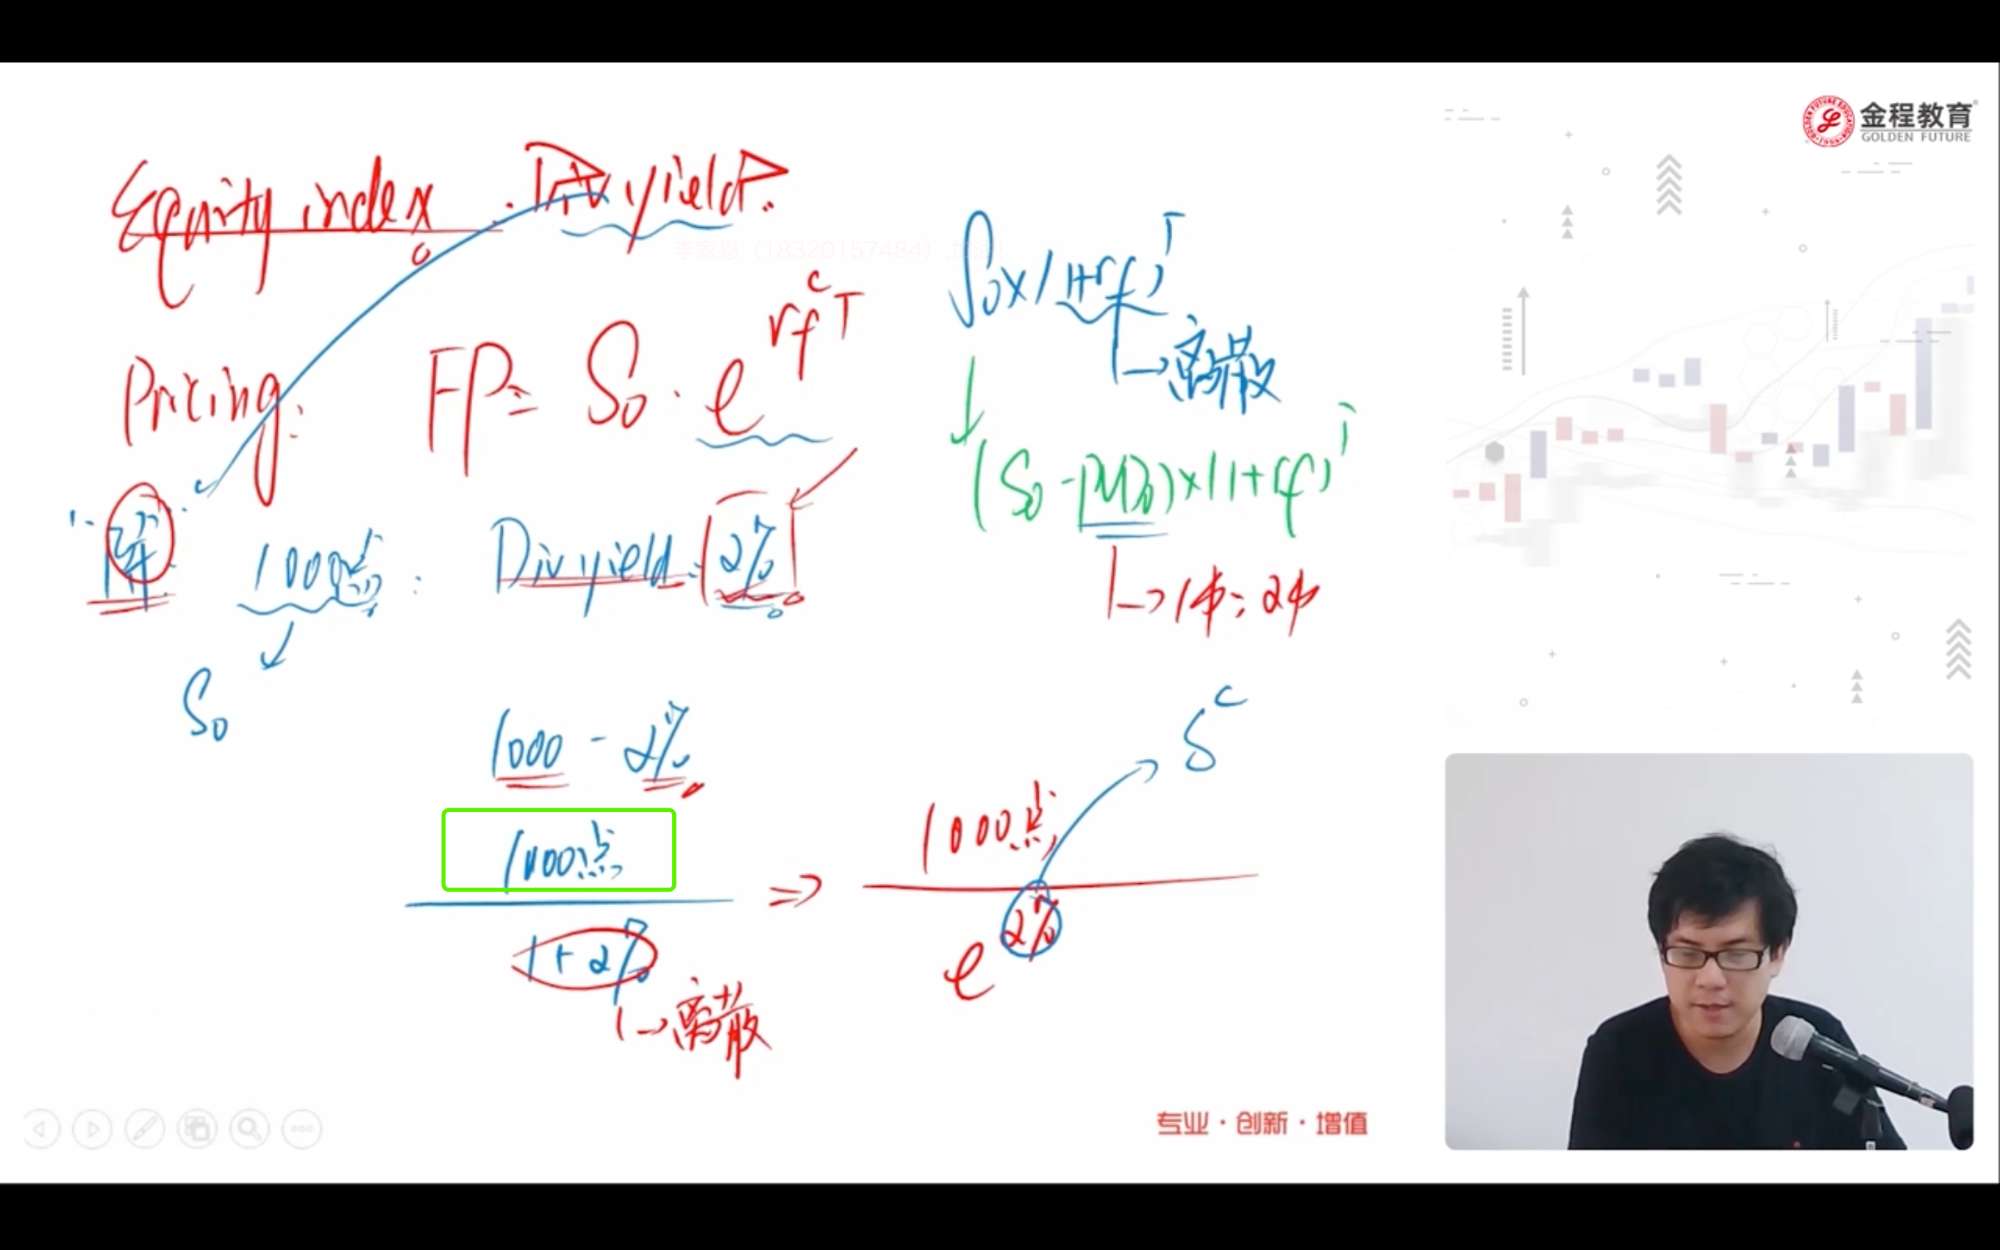 金程教育
GOLDEN FUTURE
Equity index . Div yield:
Pricing: FP = S₀ · e^{rf^c T}
S₀ × (1+rf)^T
→ 离散
(S₀ - PVD₀) × (1+rf)^T
→ 1中; 2中
1000点: Div yield: 2%
S₀
1000 - 2%
1000点
1+2%
→ 离散
⇒
1000点
e^{2%}
δ^c
专业·创新·增值